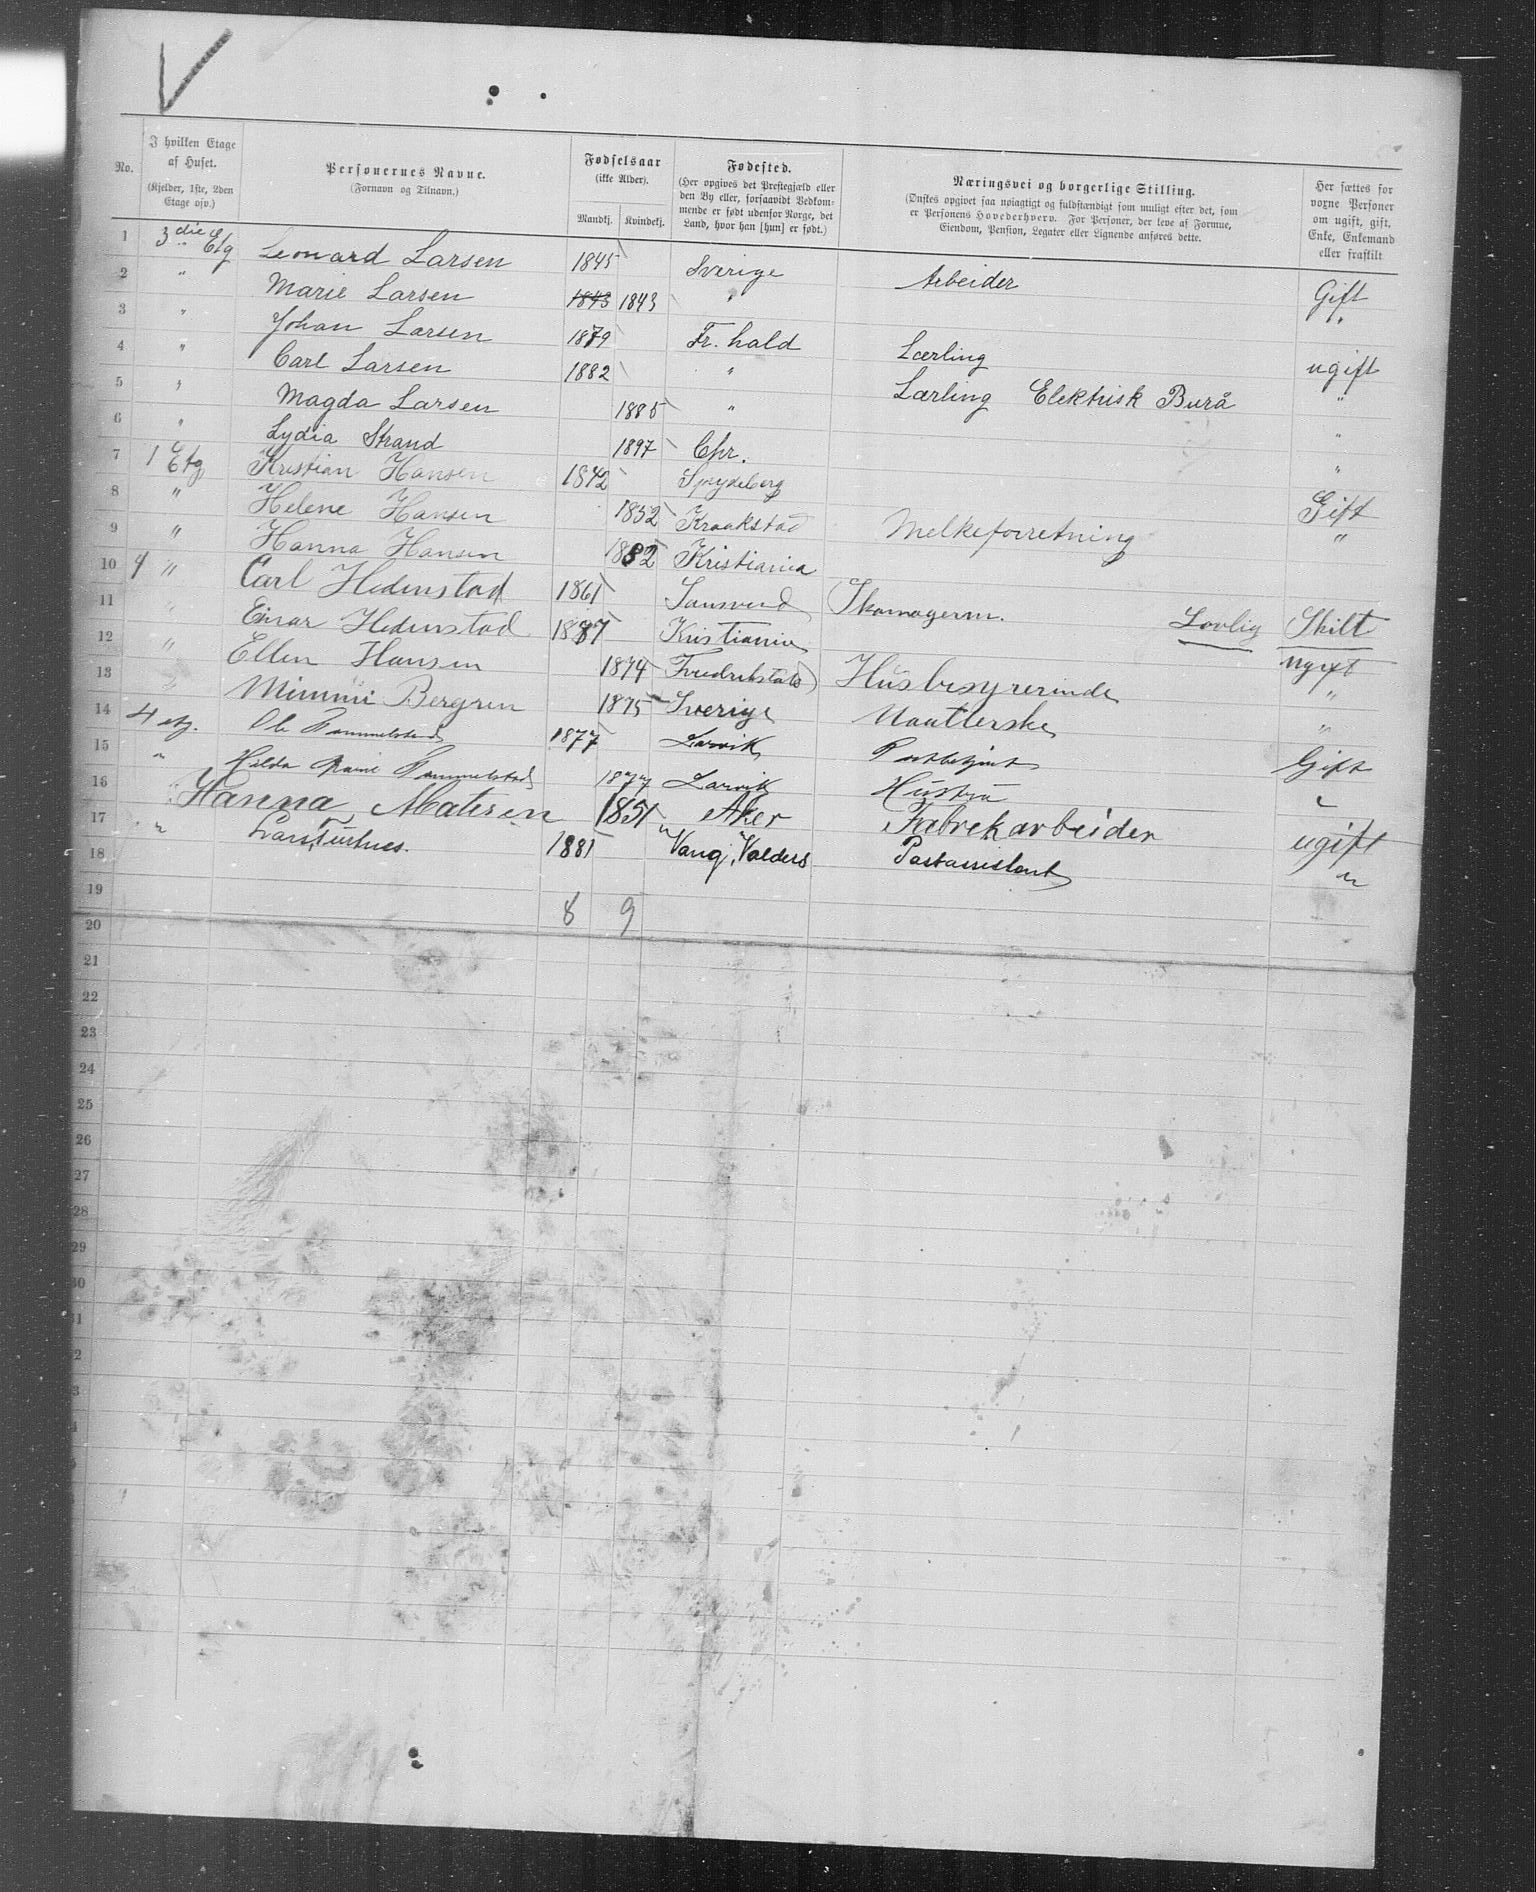 V
No.
I hvilken Etage af Huset.
(Kjelder, 1ste, 2den Etage osv.)
Personernes Navne.
(Fornavn og Tilnavn.)
Fødselsaar
(ikke Alder).
Mandkj. Kvindekj.
Fødested.
(Her opgives det Præstegjæld eller den By eller, forsaavidt Vedkommende er født udenfor Norge, det Land, hvor han [hun] er født.)
Næringsvei og borgerlige Stilling.
(Ønskes opgivet saa nøiagtigt og fuldstændigt som muligt efter det, som er Personens Hovederhverv. For Personer, der leve af Formue, Eiendom, Pension, Legater eller Lignende anføres dette.
Her sættes for voxne Personer om ugift, gift, Enke, Enkemand eller fraskilt
1 3die Etg Leonard Larsen 1845 Sverige Arbeider Gift
2 " Marie Larsen 1843 1843 " "
3 " Johan Larsen 1879 Fr. hald Lærling ugift
4 " Carl Larsen 1882 " Lærling Elektrisk Burå "
5 " Magda Larsen 1885 " "
6 " Lydia Strand 1897 Chr. "
7 1 Etg Kristian Hansen 1842 Spydeberg Gift
8 " Helene Hansen 1852 Kraakstad Melkeforretning "
9 " Hanna Hansen 1882 Kristiania
10 4 " Carl Hedenstad 1861 Sansverd Skomagerm. Lovlig Skilt
11 " Einar Hedenstad 1887 Kristiania ugift
12 " Ellen Hansen 1874 Fredrikstad Husbesyrerinde "
13 " Mimmi Bergren 1875 Sverige Naatlerske "
14 4 etg. Ole 1877 Larvik Gift
15 " Hilda 1877 Larvik Hustru "
16 Hanna Matisen 1851 Aker Fabrekarbeider ugift
17 " Lars 1881 Vang, Valders Postassistent "
18
19 8 9
20
21
22
23
24
25
26
27
28
29
30
31